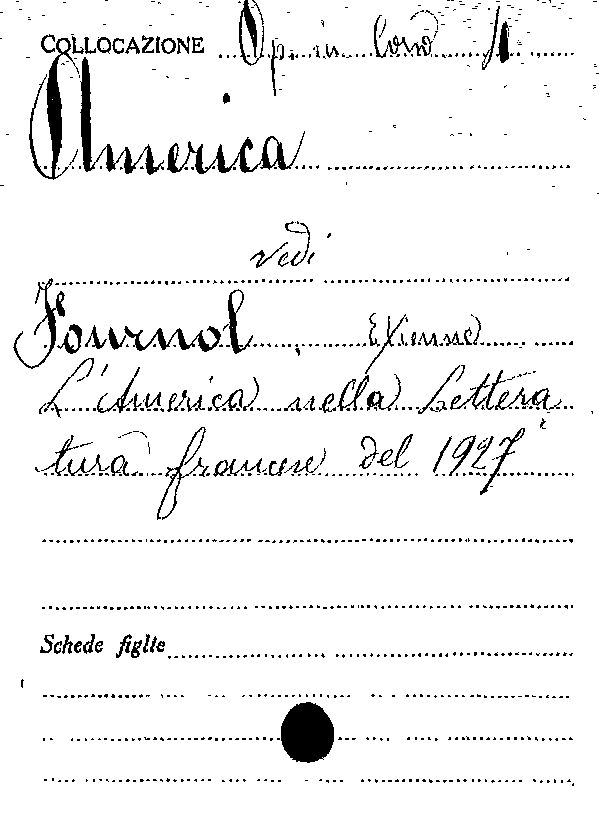 COLLOCAZIONE Op. in Cors 1
America
vedi
Fournol, Etienne
L'America nella Lettera
tura francese del 1927
Schede figlie